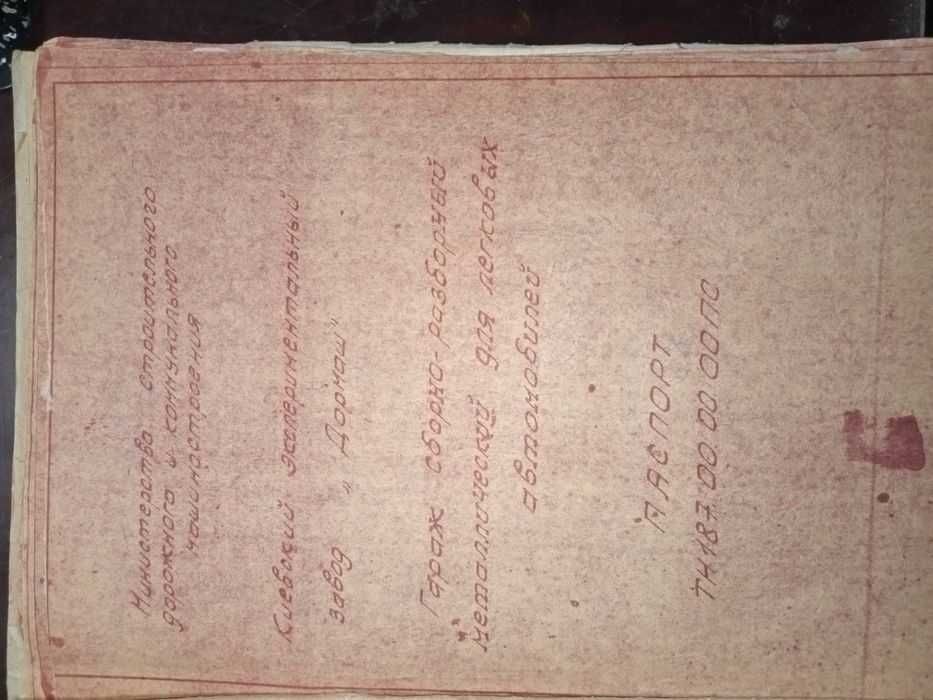 Министерство строительного
дорожного и коммунального
машиностроения
Киевский экспериментальный
завод "Дормаш"
Гараж сборно-разборный
металлический для легковых
автомобилей
ПАСПОРТ
ТН187.00.00.00ПС